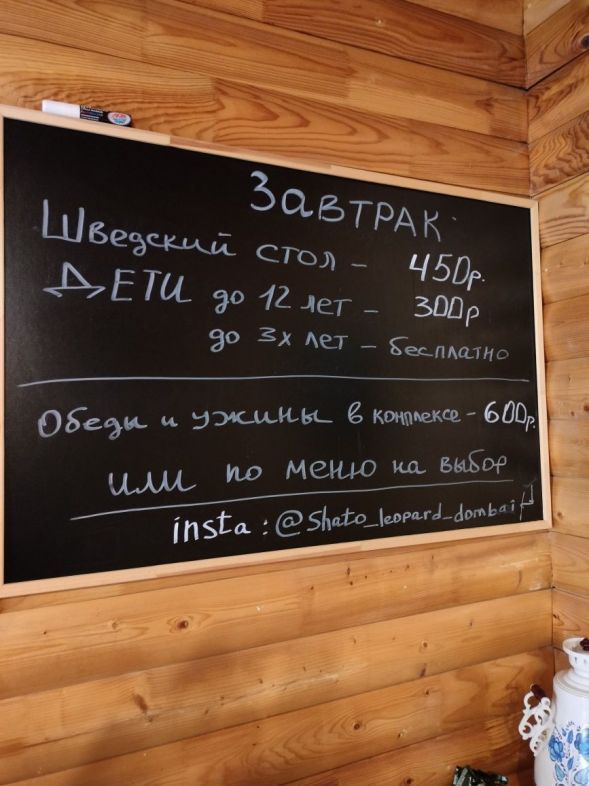 Завтрак
Шведский стол - 450р.
Дети до 12 лет - 300р
до 3х лет - бесплатно
Обеды и ужины в комплексе - 600р.
или по меню на выбор
insta : @Shato_leopard_dombai